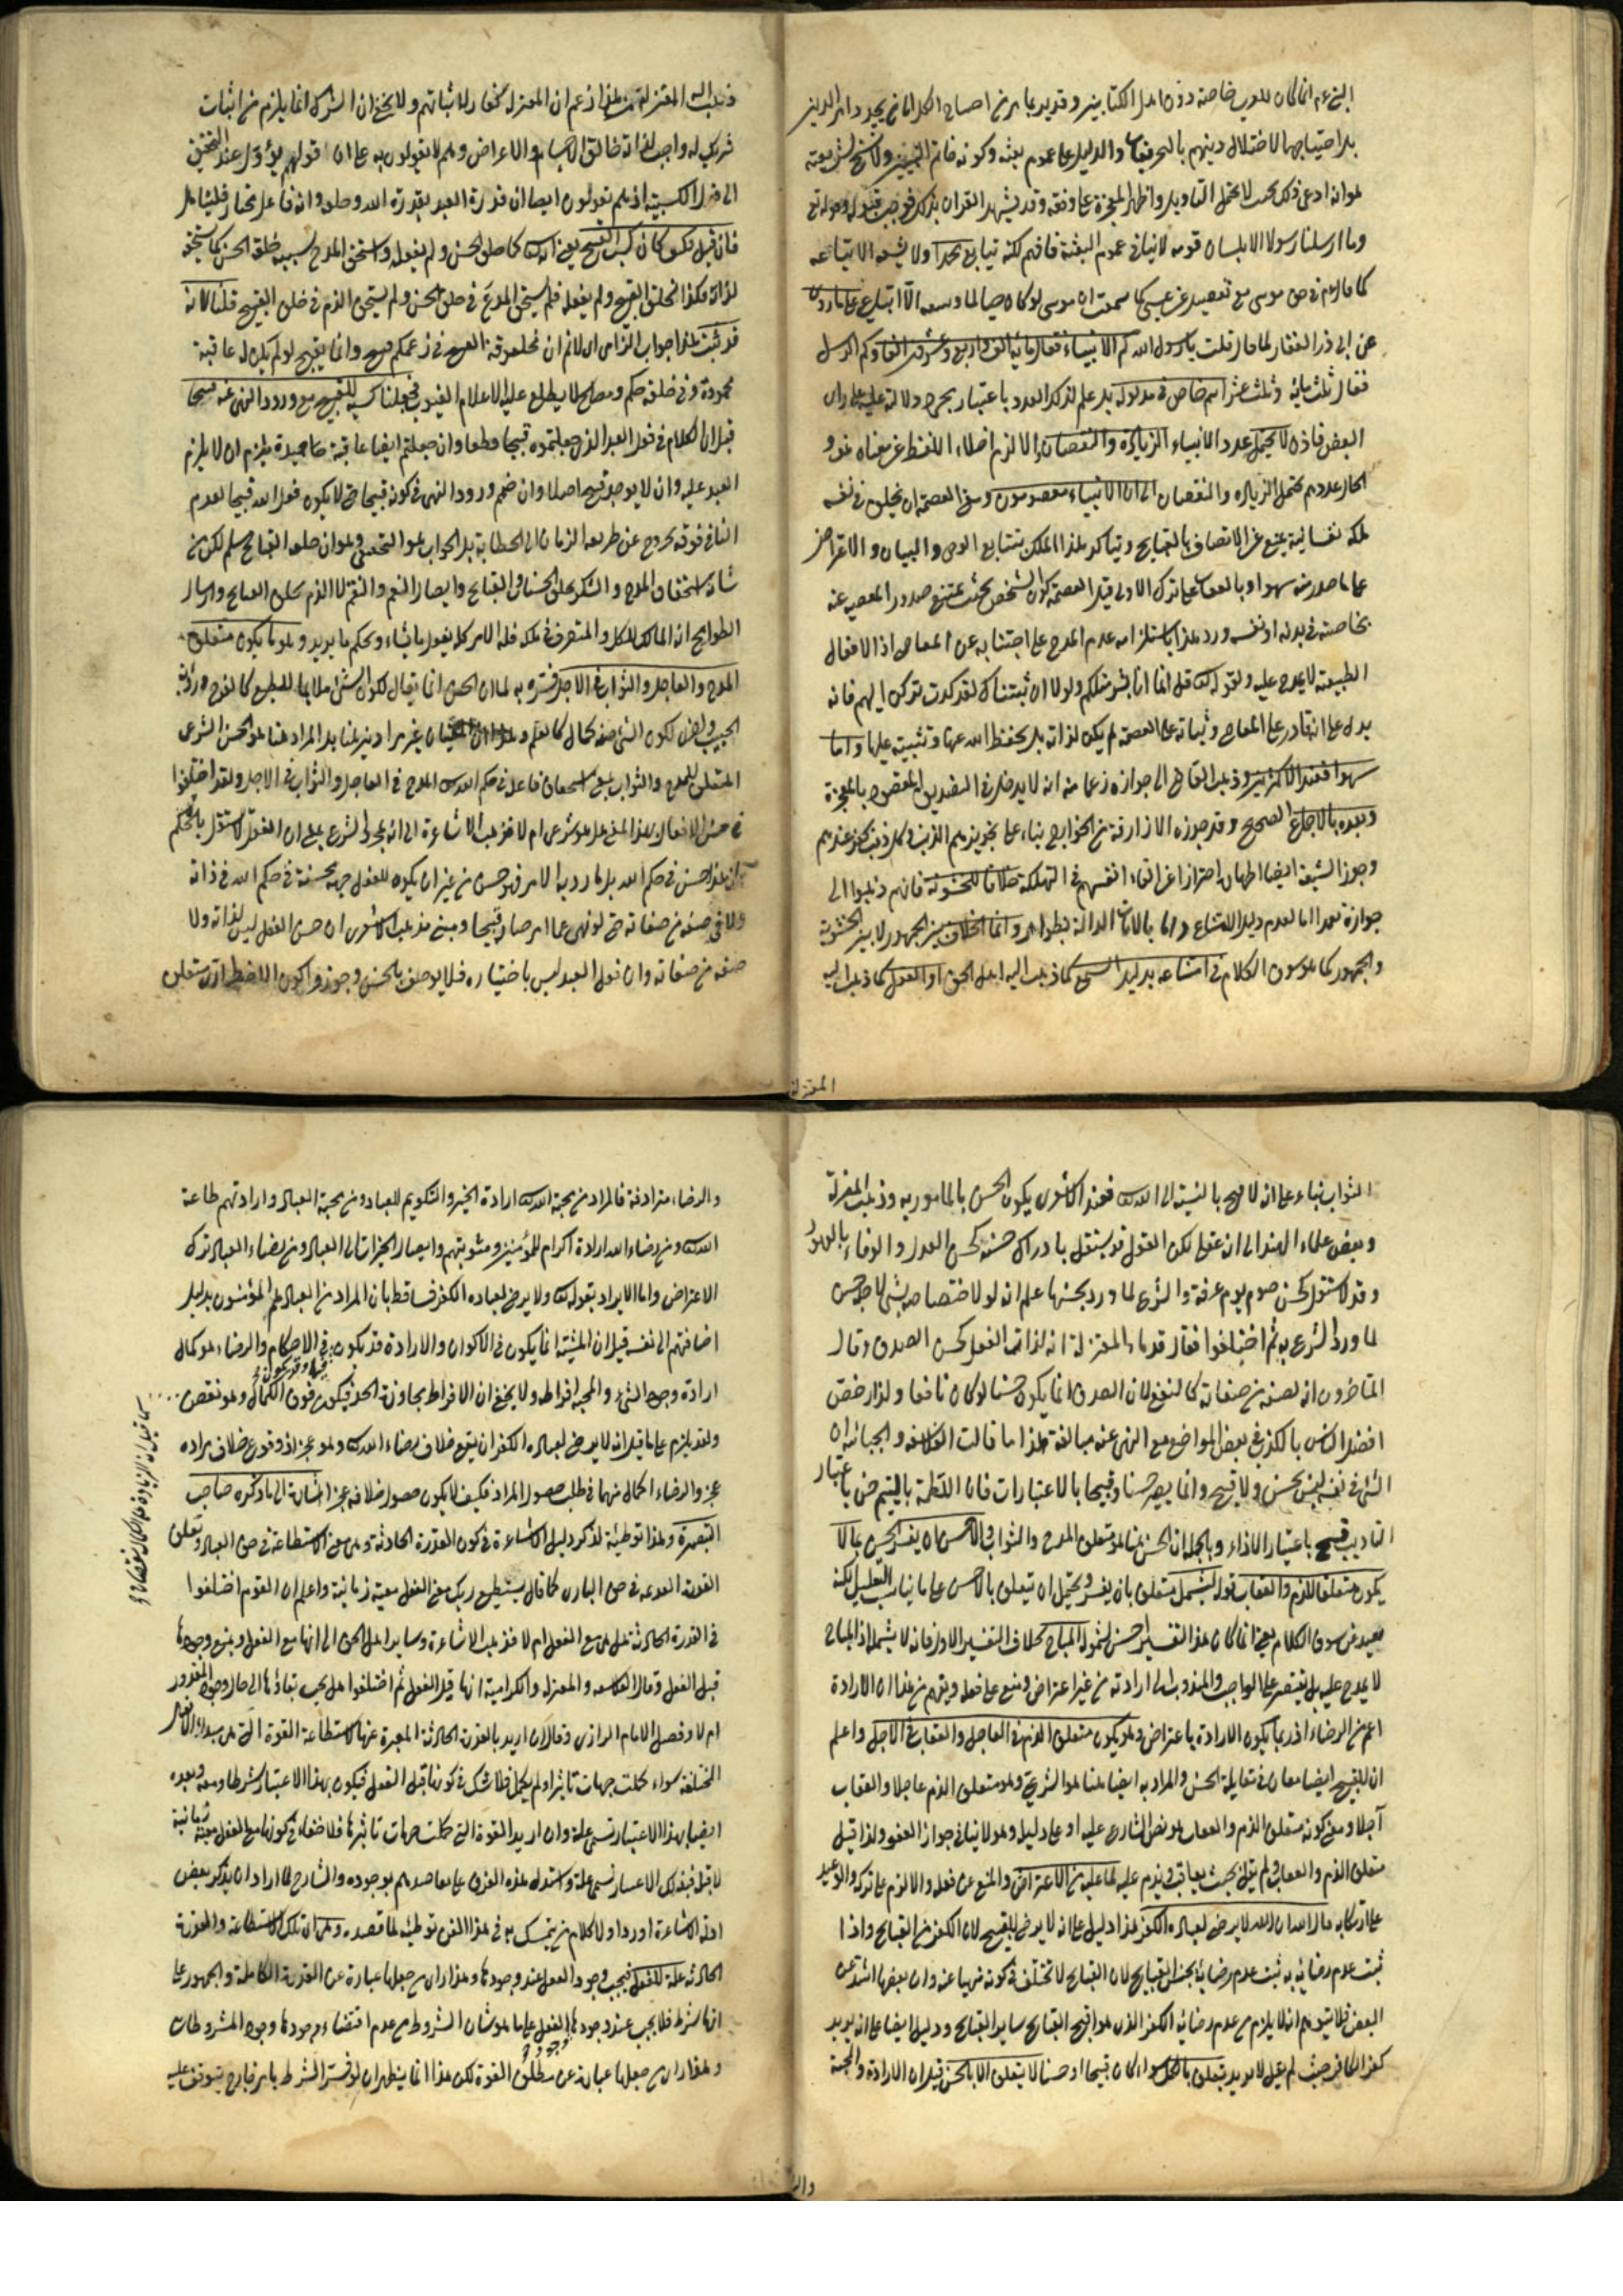 النبي عم انما كان للعرب خاصة دون اهل الكتابين وقد يدعا بر من احتياج الكل الى من يجدد امر الدين
بل احتياجهما لاختلال دينهم بالتحريفات والدليل على عموم بعثته وكونه خاتم النبيين ولا نسخ لشريعته
هو انه ادعى ذلك بحيث لا يحتمل التأويل واظهر المعجزة على وفقه وقد شهد القران بذلك فوجب قبوله وقوله تع
وما ارسلنا رسولا الا بلسان قومه لا ينافى عموم البعثة فافهم لكنه يتابع محمدا ولا يسعه الا اتباعه
كما قال عم في حق موسى مع عيسى كما سمعت ان موسى لو كان حيا لما وسعه الا اتباعى على ما روى
عن ابى ذر الغفارى لما قال قلت يا رسول الله كم الانبياء فقال مائة الف واربع وعشرون الفا وكم الرسل
فقال ثلث مائة وثلث عشر اسم خاص في مدلوله بل علم لذلك العدد باعتبار دلالته عليه على راى
البعض فاذن لا يحتمل عدد الانبياء الزيادة والنقصان والا لزم اخلاء اللفظ عن معناه
الحال عددهم يحتمل الزيادة والنقصان الانبياء معصومون ومعنى العصمة ان يخلق في نفسه
ملكة نفسانية يمنع عن الاتصاف بالقبايح ويتأكد هذا الملك بتتابع الوحى والبيان والاعتراض
على ما صدر منه سهوا وبالعقاب على ترك الاولى قيل العصمة كون الشخص بحيث يمتنع صدور المعصية عنه
بخاصة في بدنه او نفسه ورد هذا باستلزامه عدم المدح على اجتنابه عن المعاصى اذ الافعال
الطبيعية لا يمدح عليه ولقوله تع قل انما انا بشر مثلكم ولولا ان ثبتناك لقد كدت تركن اليهم فانه
يدل على انه قادر على المعاصى وثباته على العصمة لم يكن لذاته بل بحفظ الله عنها وتثبيته عليها واما
سهوا فعند الاكثرين وذهب القاضى الى جوازه زعما منه انه لا يدخل في التصديق المقصود بالمعجزة
وبعده بالاجماع الصحيح وقد جوزه الازارقة من الخوارج بناء على تجويزهم الذنب وكل ذنب كفر عندهم
وجوز الشيعة ايضا اظهاره احترازا عن القاء انفسهم في التهلكة خلافا للحشوية فانهم ذهبوا الى
جوازه عمدا اما لعدم دليل الامتناع واما بالآيات الدالة بظواهر وانما الخلاف بين الجمهور لا بين الحشوية
والجمهور كما هو سوق الكلام في امتناعه بدليل السمع كما ذهب اليه اهل الحق او العقل كما ذهب اليه
المعتزلة
ذهب اليه المعتزلة زعم ان المعتزلة كفار لاثباتهم ولا يخفى ان الشرك انما يلزم من اثبات
شريك له واجب لذاته خالق الاجسام والاعراض وهم لا يقولون به على ان قولهم يؤول عند التحقيق
الى هذا الكسبية اذ هم يقولون ايضا ان قدرة العبد بقدرة الله وخلقه وانه فاعل مختار فليتأمل
فان قيل فكيف كان كسب القبيح يعنى انه تع كما خلق الحسن ولم يفعله واستحق المدح بسبب خلقه الحسن كما يستحقه
لذاته فكذا خلق القبيح ولم يفعله فلم يستحق المدح في خلق الحسن ولم يستحق الذم في خلق القبيح قلنا لانه
قد ثبت هذا جواب الزامى اى لانم ان خلق القبيح في زعمكم قبيح وانما يقبح لو لم يكن له عاقبة
محمودة وفى خلقه حكم ومصالح لا يطلع عليه الا علام الغيوب فجعلنا كسبه للقبيح مع ورود النهى عنه قبيحا
قيل ان الكلام في فعل العبد الذى جعلتموه قبيحا قطعا وان جعلتم ايضا عاقبة حميدة يلزم ان لا يلزم
العبد عليه وان لا يوجد قبيح اصلا وان ضم ورود النهى في كونه قبيحا حتى لا يكون فعل الله قبيحا لعدم
الناهى فوقه خروج عن طريقه الزمان الى الخطابة بل الجواب هو التحقيق وهو ان خلق القبايح سلم لكن من
شانه استحقاق المدح والشكر على الحسنات والقبايح وايصال النعم والنقم لا الذم بخلق القبايح وارسال
الطوايح انه المالك للكل والمتصرف في ملكه فله الامر كله يفعل ما يشاء ويحكم ما يريد وهو ما يكون متعلق
المدح والعاجل والثواب في الاجل فسره به لما ان الحسن انما يقال لكون الشئ ملايما للطبع كالفرح ورؤية
الحبيب ولكون الشئ صفة كمال كالعلم وهذان المعنيان غير مرادين هنا بل المراد هنا هو الحسن الشرعى
المتعلق للمدح والثواب بمعنى استحقاق فاعله في حكم الله تع المدح في العاجل والثواب في الاجل ولقد اختلفوا
في حسن الافعال بهذا المعنى هل هو شرعى ام لا فذهب الاشاعرة الى انه بمجرد الشرع بمعنى ان العقل لا يستقل بالحكم
بان هذا حسن في حكم الله بل ما ورد به الامر فهو حسن من غير ان يكون للفعل جهة محسنة في حكم الله في ذاته
ولا في صفة من صفاته حتى لو نهى عما امر صار قبيحا ومبنى مذهب الاشعرى ان حسن الفعل ليس لذاته ولا
صفة من صفاته وان فعل العبد ليس باختياره فلا يوصف بالحسن وجوزوا كون الاضطرارى متعلق
الثواب بناء على انه لا قبيح بالنسبة الى الله تع فعند الاشعرى يكون الحسن بالمأمور به وذهب المعتزلة
وبعض علماء الهند الى انه عقلى لكن العقل قد يستقل بادراك حسنه كحسن العدل والوفاء بالعهد
وقد لا يستقل كحسن صوم يوم عرفة والشرع لما ورد بحسنها علم انه لولا اختصاصه بشئ لاجله حسن
لما ورد الشرع به ثم اختلفوا فقال قدماء المعتزلة انه لذات الفعل كحسن الصدق وقال
المتاخرون انه لصفة من صفاته كالنفع لان الصدق انما يكون حسنا لو كان نافعا ولذا رخص
افضل الناس بالكذب في بعض المواضع مع النهى عنه مبالغة هذا ما قالت الفلاسفة والجبائية ان
الشئ في نفسه ليس بحسن ولا قبيح وانما يصير حسنا وقبيحا بالاعتبارات فان اللطمة باليتيم حسن باعتبار
التاديب قبيح باعتبار الايذاء وبالجملة ان الحسن هنا هو متعلق المدح والثواب والاحسن ان يفسر الحسن بما لا
يكون متعلقا للذم والعقاب قوله ليشمل متعلق بان يفسر ويحتمل ان يتعلق بالاحسن على ما يناسب التعليل لكنه
بعيد عن سوق الكلام يعنى انما كان هذا التفسير احسن لشموله المباح بخلاف التفسير الاول فانه لا يشمله اذ المباح
لا يمدح عليه بل يقتصر على الواجب والمندوب اى ارادته من غير اعتراض ومنع على فعله ويفهم من هذا ان الارادة
اعم من الرضاء اذ ربما يكون الارادة باعتراض وهو يكون متعلق الذم في العاجل والعقاب في الاجل واعلم
ان للقبيح ايضا معان في مقابلة الحسن والمراد به ايضا هنا هو الشرعى وهو متعلق الذم عاجلا والعقاب
آجلا ومعنى كونه متعلق الذم والعقاب هو نص الشارع عليه او على دليله وهو لا ينافى جواز العفو ولذا قيل
متعلق الذم والعقاب ولم يقل بحيث يعاقب ويذم عليه لما عليه من الاعتراض والمنع عن فعله والالزم على تركه والوعيد
على ارتكابه قال الله تع ان الله لا يرضى لعباده الكفر هذا دليل على انه لا يرضى بالقبيح لان الكفر من القبايح واذا
ثبت عدم رضائه به ثبت عدم رضائه بجنس القبايح لان القبايح لا تختلف في كونه منهيا عنه وان بعضها اشد من
البعض فلا يتوهم انه لا يلزم من عدم رضائه الكفر الذى هو اقبح القبايح ساير القبايح ودليل ايضا على انه يريد
كفر الكافر حيث لم يقل لا يريد يتعلق بالكل سواء كان قبيحا او حسنا لا يتعلق الا بالحسن قيل ان الارادة والمحبة
والر
والرضاء مترادفة فالمراد من محبة الله تع ارادة الخير والتكريم للعباد ومن محبة العباد وارادتهم طاعة
الله تع ومن رضاء الله ارادة اكرام للمؤمنين ومثوبتهم وايصال الخيرات الى العباد ومن رضاء العباد ترك
الاعتراض واما الايراد بقوله تع ولا يرضى لعباده الكفر فساقط بان المراد من العباد هم المؤمنون بدليل
اضافتهم الى نفسه قيل ان المشيئة انما يكون في الاكوان والارادة قد يكون في الاحكام والرضاء هو كمال
ارادة وجود الشئ والمحبة افراطه ولا يخفى ان الافراط مجاوزة الحد فيكون فوق الكمال وهو نقص
ولقد يلزم على ما قيل انه لا يرضى لعباده الكفر ان يقع خلاف رضاء الله تع وهو عجز اذ وقوع خلاف مراده
عجز والرضاء اكمال منها في طلب حصول المراد فكيف لا يكون حصول خلافه عجز اشارة الى ما ذكره صاحب
التبصرة وهذا توطئة لذكر دليل الاشاعرة في كون القدرة الحادثة وهى معنى الاستطاعة في حق العباد وتعلق
القوت المودعة في حق البارى كما قال يستطيع ربك مع الفعل معية زمانية واعلم ان القوم اختلفوا
في القدرة الحادثة هل هى مع الفعل ام لا فذهب الاشاعرة وساير اهل الحق الى انها مع الفعل ويمنع وجودها
قبل الفعل وقال الفلاسفة والمعتزلة والكرامية انها قبل الفعل ثم اختلفوا هل يجب بقاؤها الى حال وجود المقدور
ام لا وفصل الامام الرازى وقال ان اريد بالقدرة الحادثة المعبرة عنها بالاستطاعة القوة التى هى مبداء الافعال
المختلفة سواء كملت جهات تأثيرها او لم يكمل فلا شك في كونها قبل الفعل فيكون بهذا الاعتبار شرطا ومعه وبعده
ايضا بهذا الاعتبار تسمى علة وان اريد القوة التى كملت جهات تاثيرها فلا خفاء في كونها مع الفعل معية زمانية
لا قبله فبذلك الاعتبار تسمى علة واستدل هذه الفرق على مقاصدهم بوجوده والشارح لما اراد ان يذكر بعض
ادلة الاشاعرة اورد اولا كلام من يتمسك به في هذا الفن توطئة لما قصده وهى ان تلك الاستطاعة والقدرة
الحادثة علة للفعل فيجب وجود الفعل عند وجودها وهذا ان جعلها عبارة عن القدرة الكاملة والجمهور على
انها شرط فلا يجب عند وجودها وجود الفعل على ما هو شان الشروط من عدم اقتضاء وجودها وجود المشروطات
وهذا ان جعلها عبارة عن مطلق القوة لكن هذا انما يظهر ان لو فسر الشرط بامر خارج يتوقف عليه
كما قيل ان الزيادة على الكمال نقصان